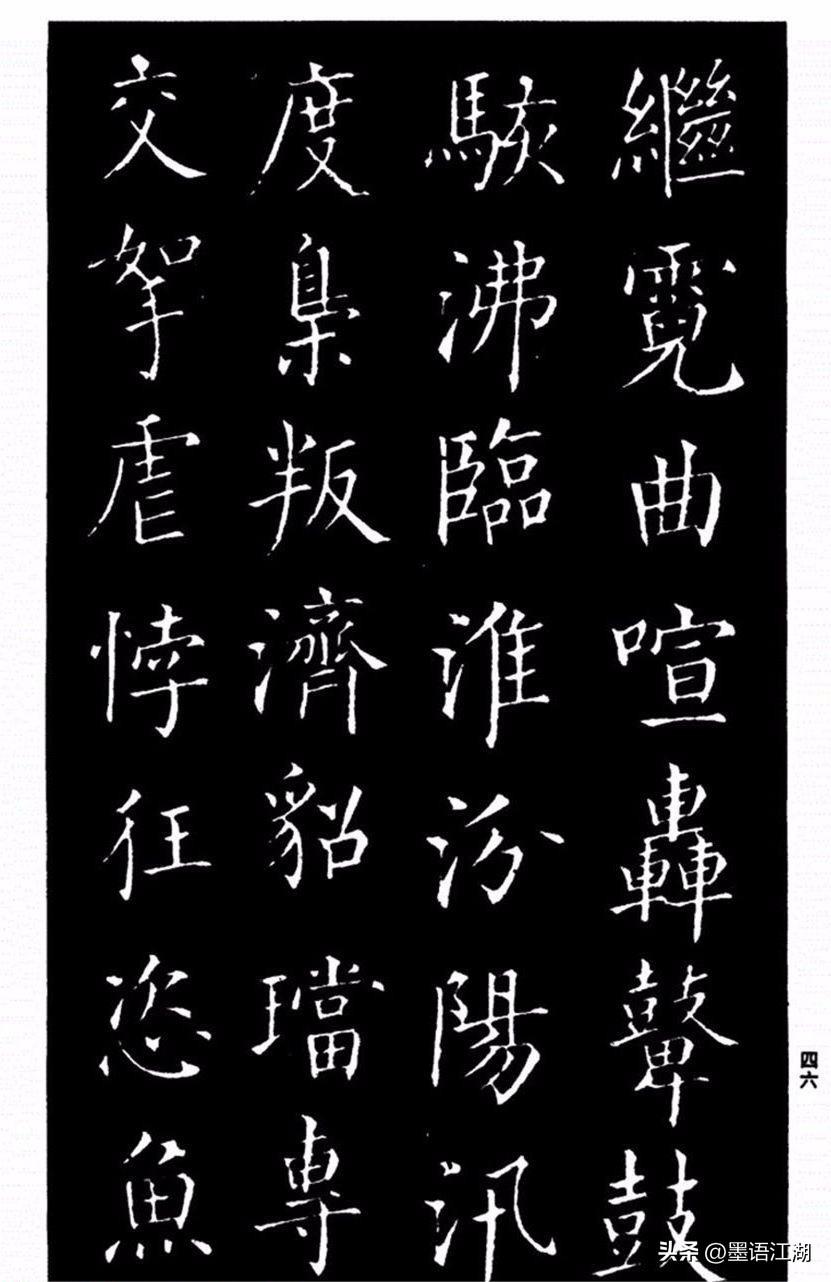 繼霓曲喧轟鼙鼓
駭沸臨淮汾陽汛
度梟叛濟貂璫專
交挐虐悖狂恣魚
四六
头条 @墨语江湖